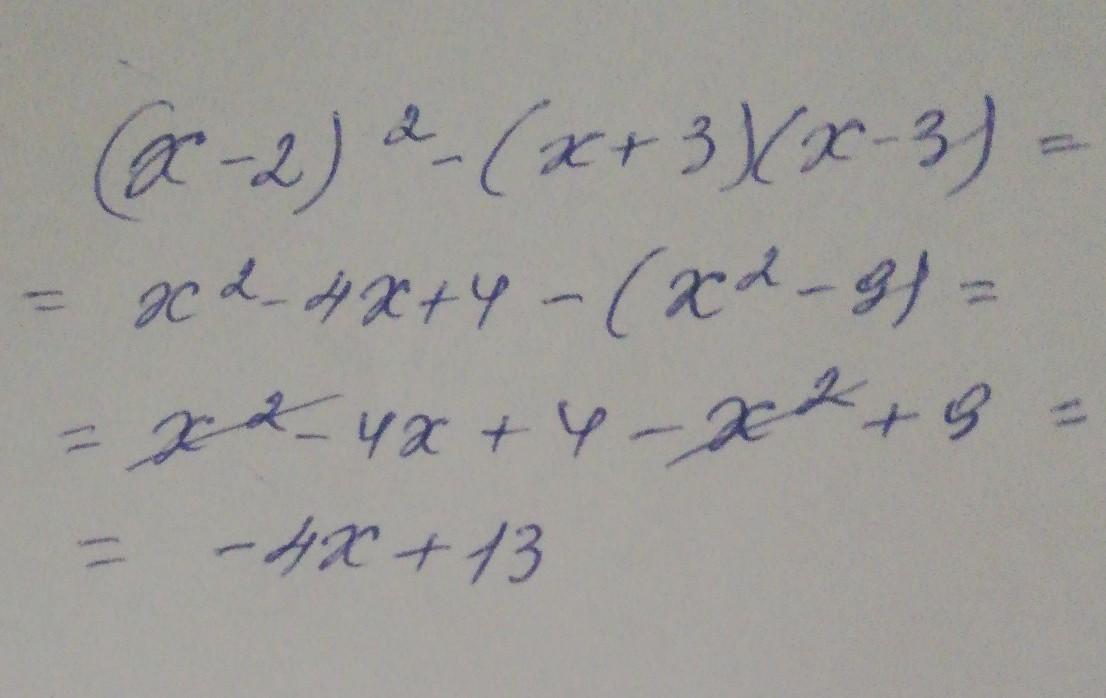 (x-2)² - (x+3)(x-3) =
= x² - 4x + 4 - (x² - 9) =
= x² - 4x + 4 - x² + 9 =
= -4x + 13